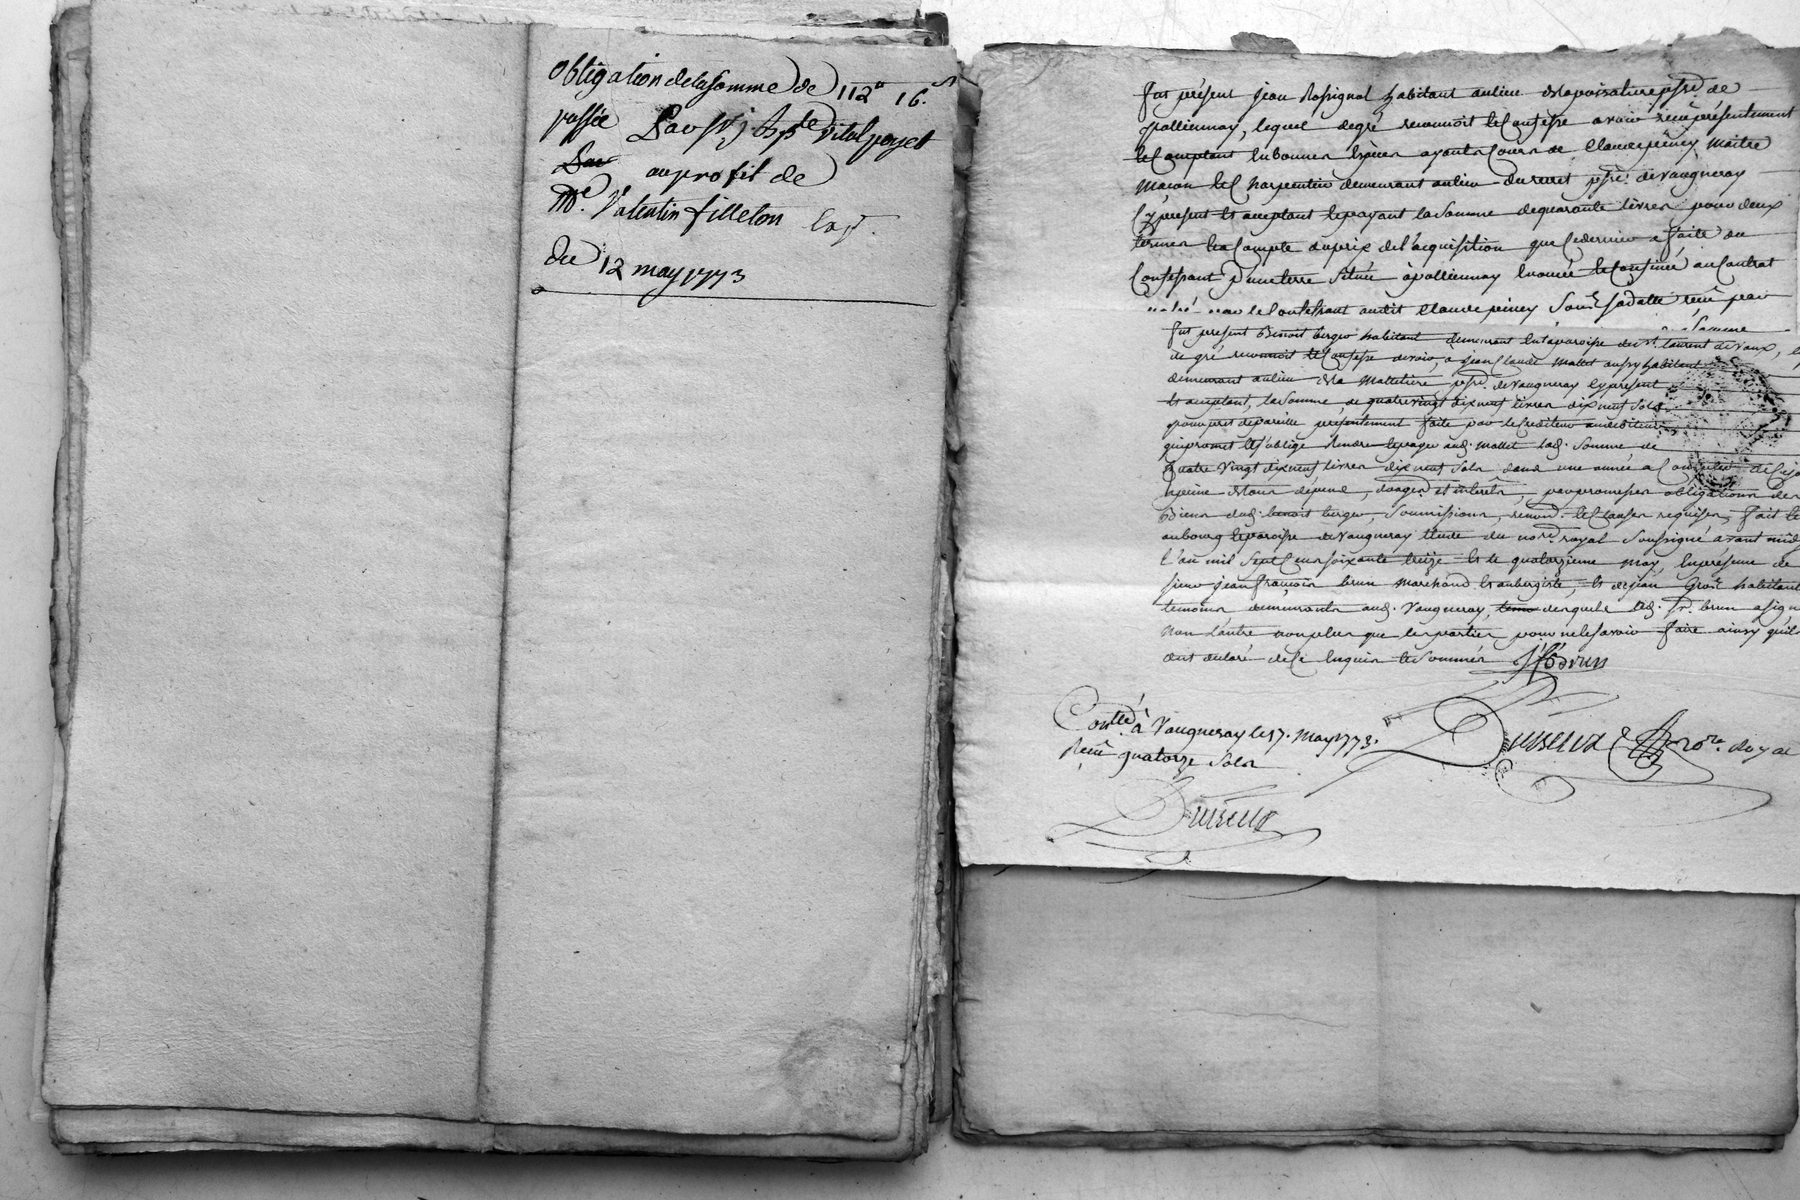 obligation de la somme de 112ᵗᵗ 16.ˢ
passée Par Sr. j. Bpte vital poyet
Par au profit de
Me. Valentin filleton Exp.
Du 12 may 1773
fut présent jean Rossignol habitant au lieu de la poissature psse de
pollionnay, lequel de gré reconnoit et Confesse avoir reçu présentement
et Comptant en bonnes espèces ayant Cours de Claude peiney Maitre
Maçon et Charpentier demeurant au lieu psse. de vaugneray
Cy présent et acceptant et payant la Somme de quarante livres pour deux
termes et a Compte du prix de l'acquisition que Ce dernier a faite du
Confessant d'une terre Située à pollionnay enoncée et Confinée au Contrat
par le Confessant audit Claude peiney Sous Sa datte reçu par
Somme
fut présent Benoit berger habitant demeurant en la paroisse de st. laurent de vaux,
de gré reconnoit et Confesse devoir, à jean Claude Mallet aussy habitant
demeurant au lieu de la Malletière psse. de vaugneray Cy présent
et acceptant, la Somme de quatre vingt dix neuf livres dix neuf Sols
pour prest de pareille présentement faite par le Créditeur au debiteur
qui promet et s'oblige rendre et payer aud. Mallet lad. Somme de
quatre vingt dix neuf livres dix neuf Sols dans une année a Compter de Ce jo
a peine de tous dépens, dommages et intérêts, par promesses obligations des
Biens dud. benoit berger, Soumissions, renonc. et Clauses requises, fait et
au bourg et paroisse de vaugneray étude du nore. royal Soussigné avant midy
l'an mil Sept Cent Soixante treize et le quatorzieme May, en présence de
Sieur jean françois brun Marchand et aubergiste, et de jean habitant
témoins demeurants aud. Vaugneray, desquels led. Sr. brun a signé
non l'autre non plus que les parties pour ne le Savoir faire ainsy qu'ils
ont déclaré de Ce enquis et Sommés jfs brun
Contlé. à Vaugneray le 17. May 1773.
Reçu quatorze Sols
nore. Royal